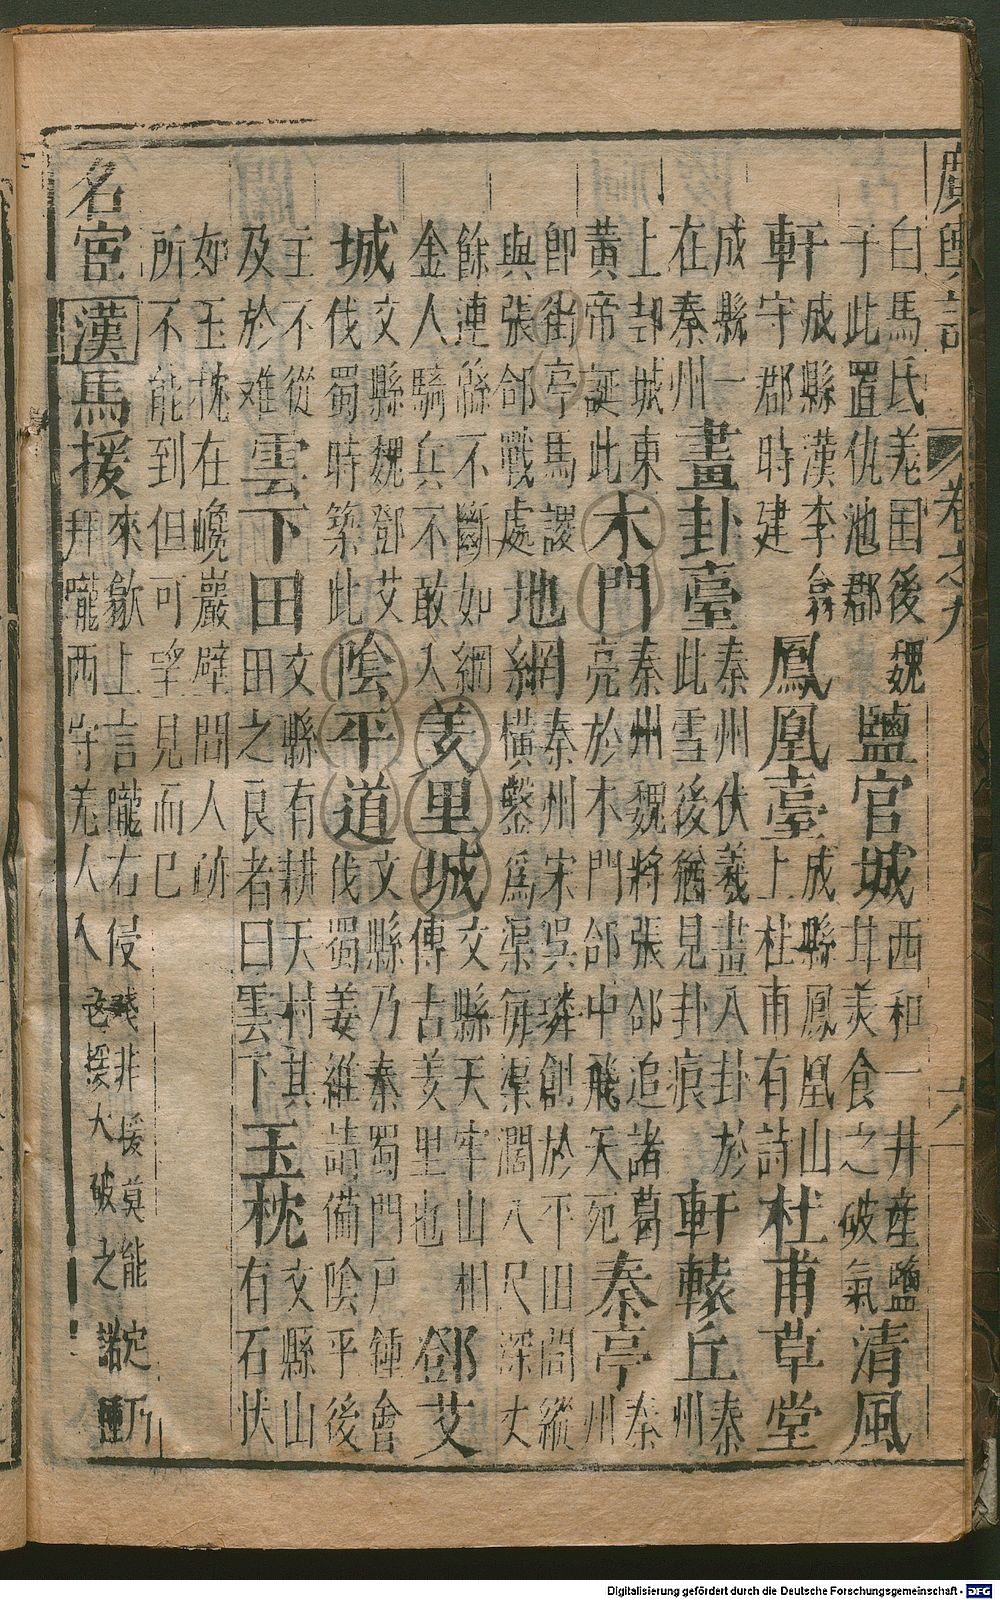 廣輿記 卷之九 六
白馬氏羌国後魏
于此置仇池郡
鹽官城
西和一井産鹽
甘美食之破氣
清風
軒
成縣漢李翕
守郡時建
鳳凰臺
成縣鳳凰山
上杜甫有詩
杜甫草堂
成縣一
在秦州
畫卦臺
秦州伏羲畫八卦於
此雪後猶見卦痕
軒轅丘
秦
州
上邽城東
黃帝誕此
木門
秦州魏將張郃追諸葛
亮於木門郃中飛矢死
秦亭
秦
州
卽街亭馬謖
與張郃戰處
地網
秦州宋吳璘創於平田間縱
橫鑿爲渠每渠濶八尺深丈
餘連綿不斷如網
金人騎兵不敢入
姜里城
文縣天牢山相
傳古姜里也
鄧艾
城
文縣魏鄧艾
伐蜀時築此
陰平道
文縣乃秦蜀門戶鍾會
伐蜀姜維請備陰平後
主不從
及於难
雲下田
文縣有耕天村其
田之良者曰雲下
玉枕
文縣山
有石狀
如玉枕在巉巖壁間人跡
所不能到但可望見而已
名宦 漢 馬援
來歙上言隴右侵殘非援莫能定乃
拜隴西守羌人入寇援大破之諸種
Digitalisierung gefördert durch die Deutsche Forschungsgemeinschaft - DFG